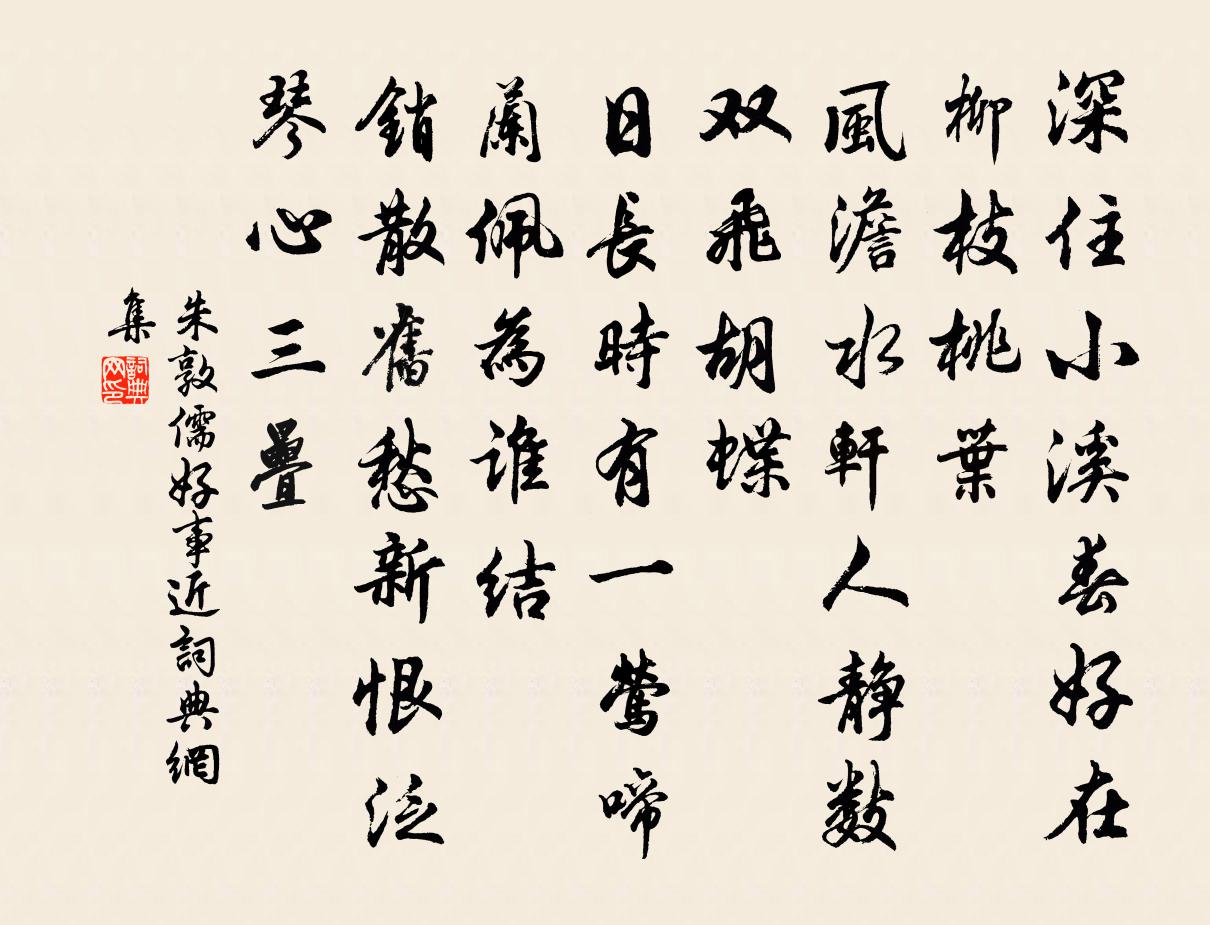 深住小溪春好在
柳枝桃葉
風澹水軒人靜數
双飛胡蝶
日長時有一鶯啼
蘭佩為誰結
銷散舊愁新恨泛
琴心三疊
朱敦儒好事近詞典網
集
詞典网印